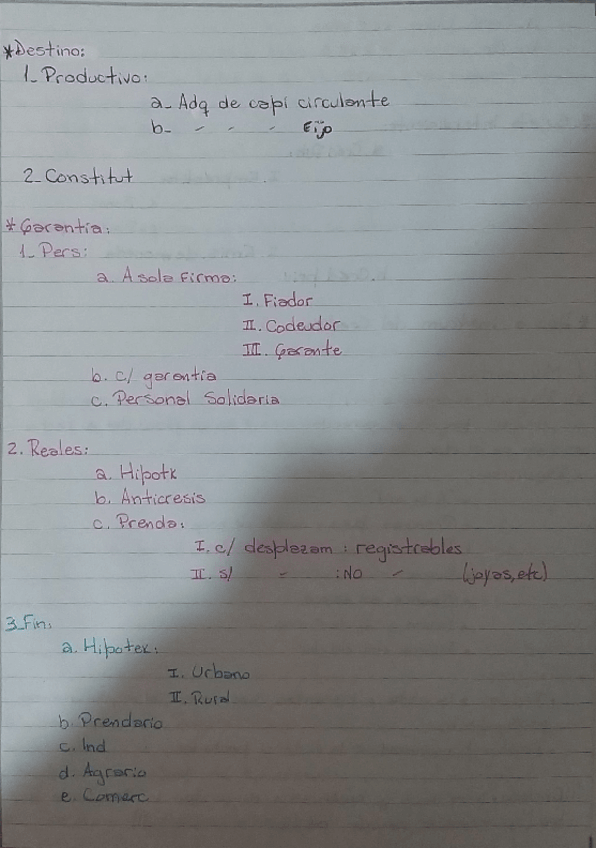 *Destino:
1_ Productivo:
a_ Adq de capi circulante
b_ - - - Fijo
2_ Constitut
* Garantía:
1_ Pers:
a. A sola Firma:
I. Fiador
II. Codeudor
III. Garante
b. c/ garantia
c. Personal Solidaria
2. Reales:
a. Hipotk
b. Anticresis
c. Prenda:
I. c/ desplazam : registrables
II. s/ - : NO - (joyas, etc)
3_Fin:
a. Hipotek:
I. Urbano
II. Rural
b. Prendario
c. Ind
d. Agrario
e. Comerc